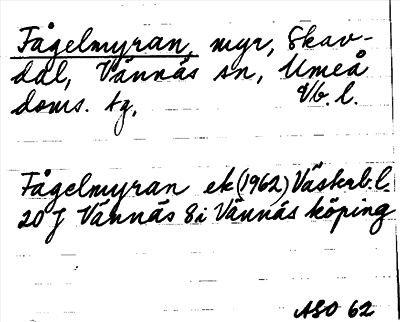 Fågelmyran, myr, Skav-
dal, Vännäs sn, Umeå
doms. tg, Vb. l.
Fågelmyran ek (1962) Väskrb. l.
20 J Vännäs 8i Vännäs köping
ASO 62